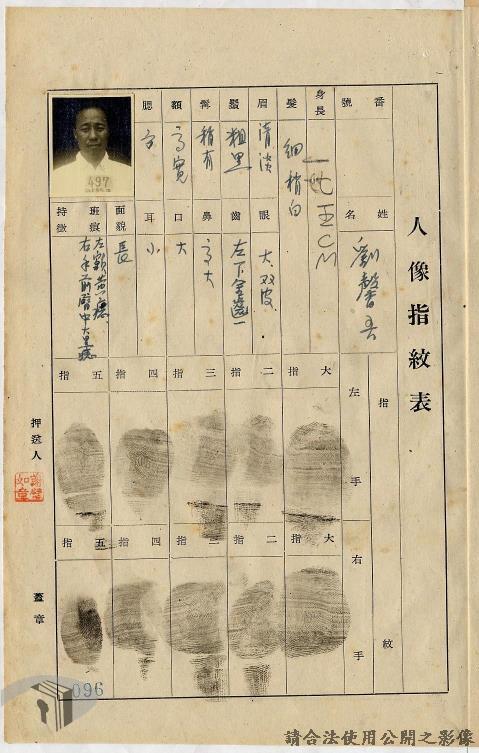 人像指紋表
番號
姓名
劉馨吾
身長
髮
細稍白
眉
清淡
眼
大双皮
鬚
粗黑
齒
左下金邊一
髯
稍有
鼻
高大
額
高寬
口
大
腮
耳
小
面貌
長
斑痕
特徵
497
指紋
左手
大指
二指
三指
四指
五指
右手
大指
二指
三指
四指
五指
押送人
蓋章
096
請合法使用公開之影像